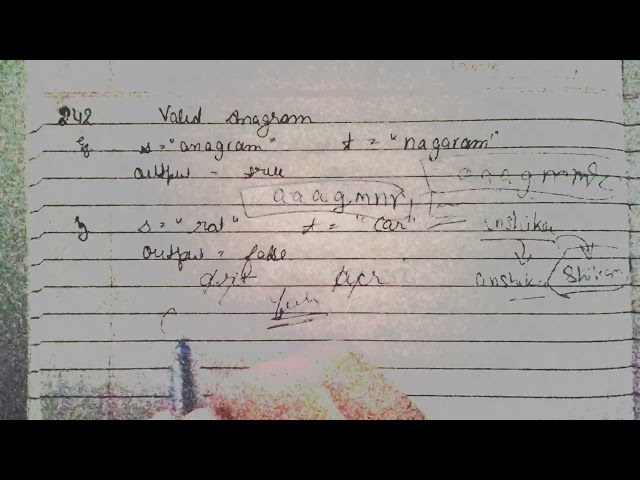 242 Valid Anagram
Eg s = "anagram" t = "nagaram"
output - true
aaagmnr
aaagmnr
Eg s = "rat" t = "car"
anshika
output = false
art acr
anshik